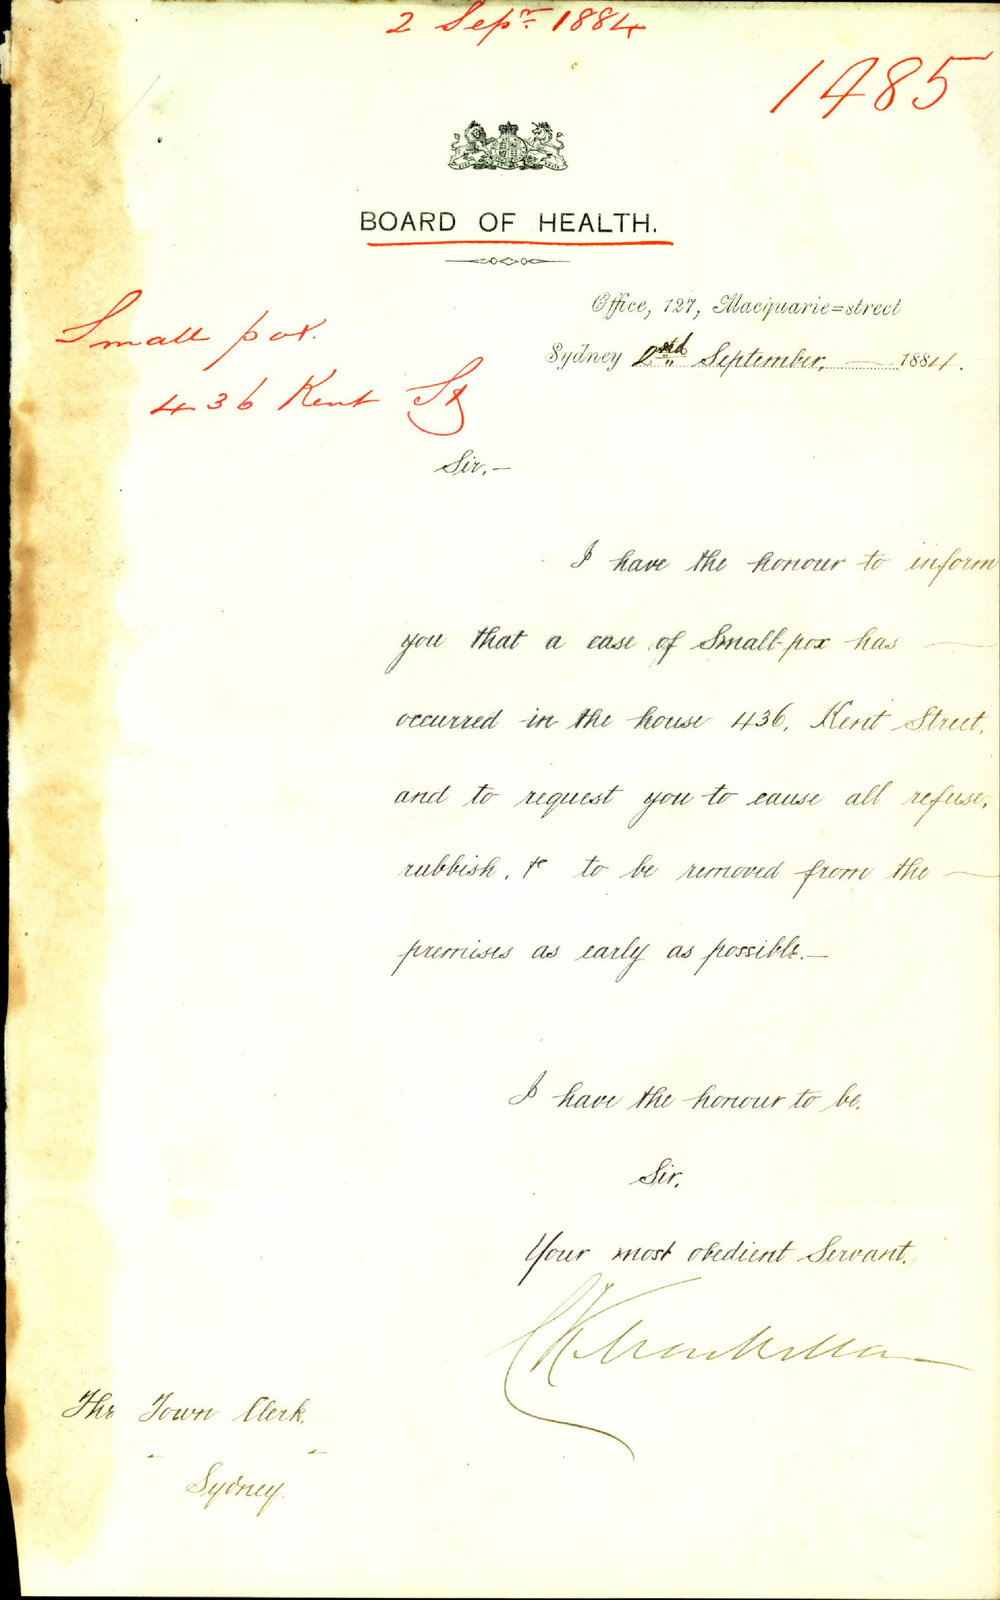 2 Sepr 1884
1485
BOARD OF HEALTH.
Office, 127, Macquarie=street
Small pox.
Sydney 2nd September, 1884.
436 Kent St
Sir,—
I have the honour to inform
you that a case of Small-pox has —
occurred in the house 436, Kent Street,
and to request you to cause all refuse,
rubbish, &c to be removed from the —
premises as early as possible.—
I have the honour to be,
Sir,
Your most obedient Servant,
The Town Clerk,
Sydney.